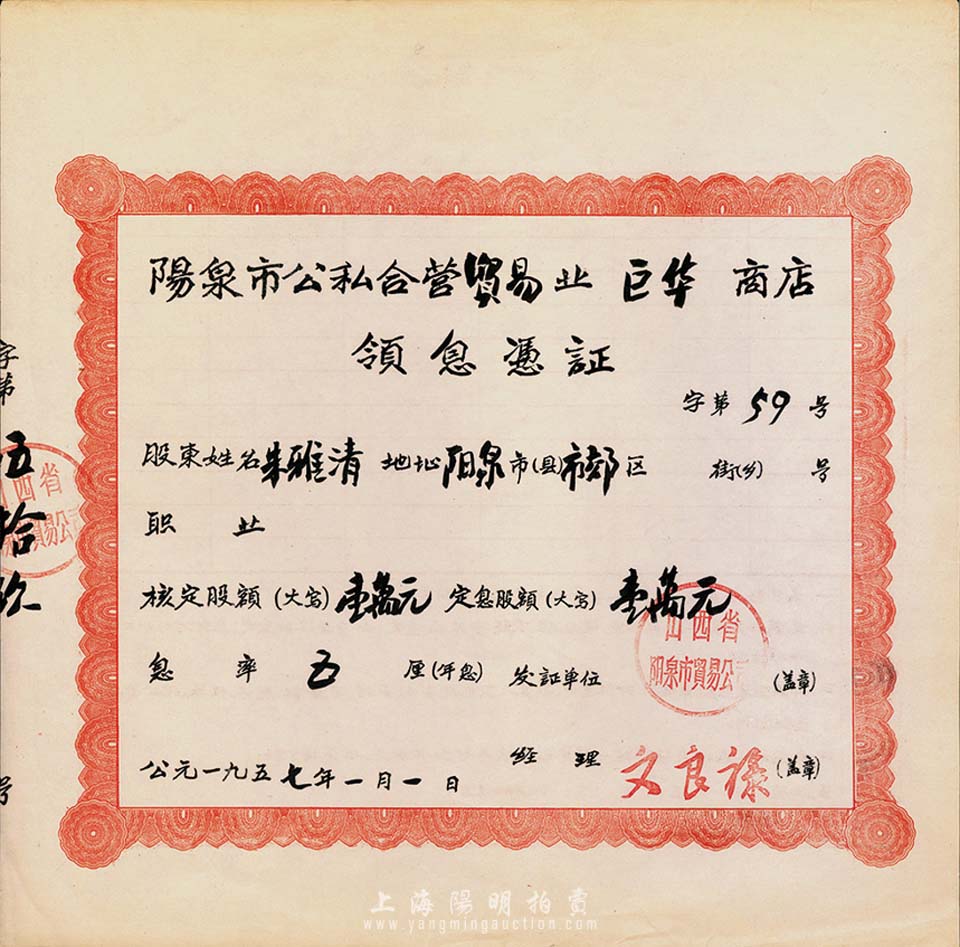 陽泉市公私合营貿易业 巨华 商店
領息憑証
字第 59 号
股東姓名 朱雅清 地址 阳泉市(县)市郊区 街(乡) 号
职业
核定股額(大写) 壹萬元 定息股額(大写) 壹萬元
息率 五 厘(年息) 发証单位 (盖章)
山西省
阳泉市貿易公司
经理 文良禄 (盖章)
公元一九五七年一月一日
字第 伍拾玖 号
上海陽明拍賣
www.yangmingauction.com